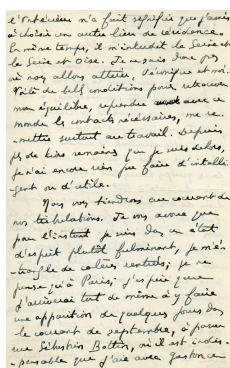 l'Intérieur m'a fait signifier que j'avais
à choisir un autre lieu de résidence.
En même temps, il m'interdit la Seine et
la Seine et Oise. Je ne sais donc pas
où nous allons atterrir, Véronique et moi.
Voilà de belles conditions pour retrouver
mon équilibre, reprendre avec ce
monde les contacts nécessaires, me re-
-mettre surtout au travail. Depuis
près de trois semaines que je suis dehors,
je n'ai encore rien pu faire d'intelli-
gent ou d'utile.
Nous vous tiendrons au courant de
nos tribulations. Je vous avoue que
pour l'instant je suis dans un état
d'esprit plutôt fulminant, je m'é-
-trangle de colères rentrées; je ne
pense qu'à Paris; j'espère que
j'arriverai tout de même à y faire
une apparition de quelques jours dans
le courant de septembre, à passer
rue Sébastien Bottin, où il est indis-
-pensable que j'aie avec Gaston ce